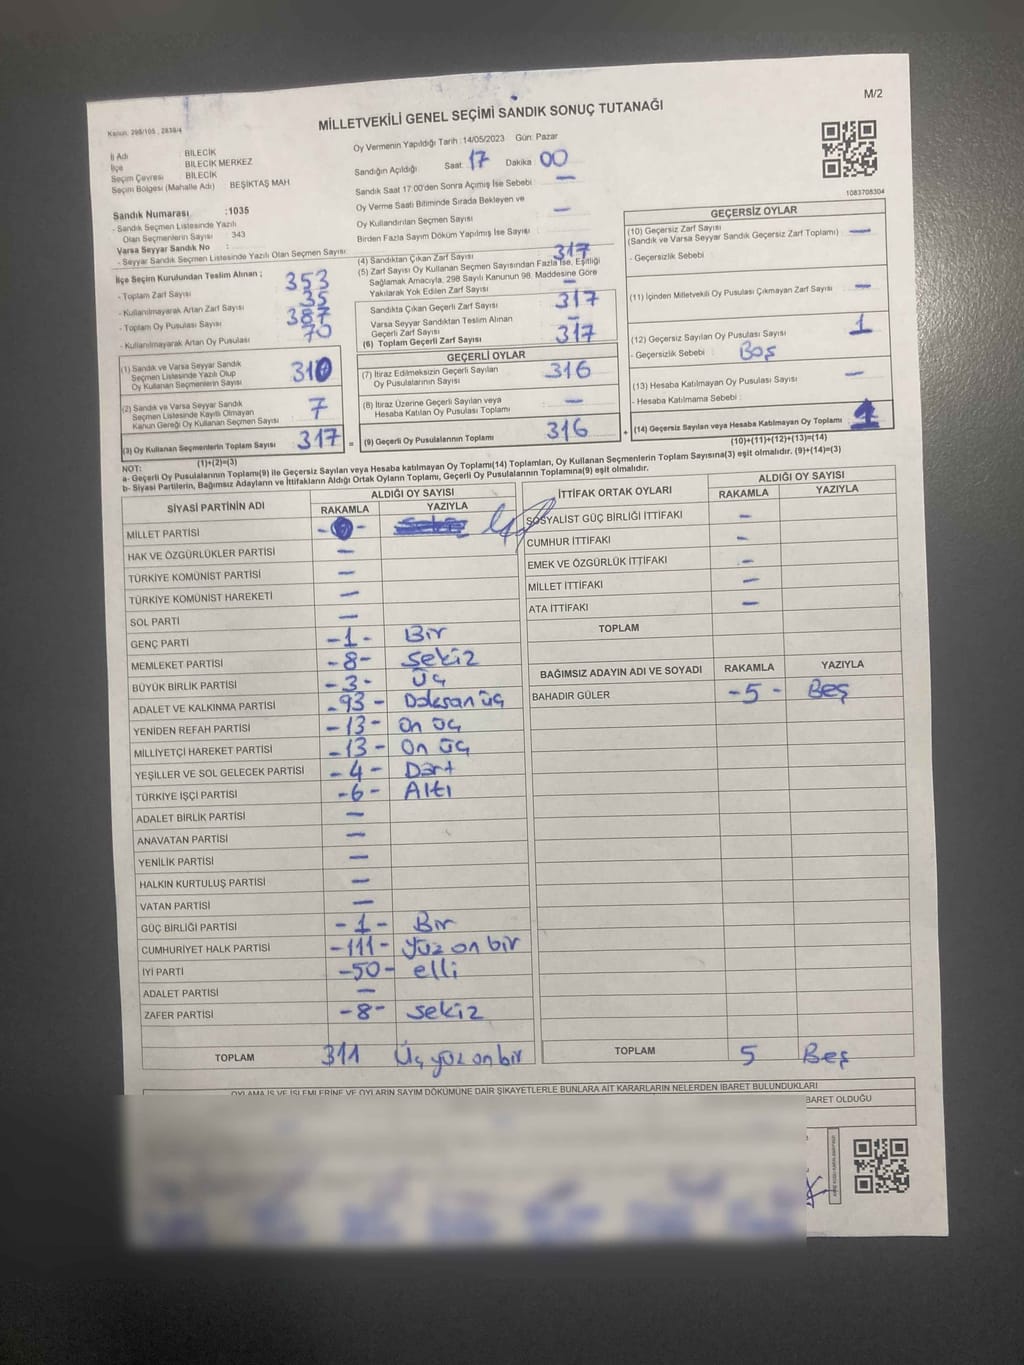 M/2
MİLLETVEKİLİ GENEL SEÇİMİ SANDIK SONUÇ TUTANAĞI
Kanun: 298/105 , 2839/4
İl Adı BİLECİK
İlçe BİLECİK MERKEZ
Seçim Çevresi BİLECİK
Seçim Bölgesi (Mahalle Adı) BEŞİKTAŞ MAH
Sandık Numarası :1035
- Sandık Seçmen Listesinde Yazılı
Olan Seçmenlerin Sayısı 343
Varsa Seyyar Sandık No :
- Seyyar Sandık Seçmen Listesinde Yazılı Olan Seçmen Sayısı
Oy Vermenin Yapıldığı Tarih :14/05/2023 Gün: Pazar
Sandığın Açıldığı Saat 17 Dakika 00
Sandık Saat 17:00'den Sonra Açımış İse Sebebi —
Oy Verme Saati Bitiminde Sırada Bekleyen ve
Oy Kullandırılan Seçmen Sayısı —
Birden Fazla Sayım Döküm Yapılmış İse Sayısı :
1083708304
İlçe Seçim Kurulundan Teslim Alınan ;
- Toplam Zarf Sayısı 353
- Kullanılmayarak Artan Zarf Sayısı 35
- Toplam Oy Pusulası Sayısı 387
- Kullanılmayarak Artan Oy Pusulası 70
(1) Sandık ve Varsa Seyyar Sandık
Seçmen Listesinde Yazılı Olup
Oy Kullanan Seçmenlerin Sayısı 310
(2) Sandık ve Varsa Seyyar Sandık
Seçmen Listesinde Kayıtlı Olmayan
Kanun Gereği Oy Kullanan Seçmen Sayısı 7
(3) Oy Kullanan Seçmenlerin Toplam Sayısı 317 =
(1)+(2)=(3)
(4) Sandıktan Çıkan Zarf Sayısı 317
(5) Zarf Sayısı Oy Kullanan Seçmen Sayısından Fazla İse, Eşitliği
Sağlamak Amacıyla, 298 Sayılı Kanunun 98. Maddesine Göre
Yakılarak Yok Edilen Zarf Sayısı —
Sandıkta Çıkan Geçerli Zarf Sayısı 317
Varsa Seyyar Sandıktan Teslim Alınan
Geçerli Zarf Sayısı —
(6) Toplam Geçerli Zarf Sayısı 317
GEÇERLİ OYLAR
(7) İtiraz Edilmeksizin Geçerli Sayılan
Oy Pusulalarının Sayısı 316
(8) İtiraz Üzerine Geçerli Sayılan veya
Hesaba Katılan Oy Pusulası Toplamı —
(9) Geçerli Oy Pusulalarının Toplamı 316 +
GEÇERSİZ OYLAR
(10) Geçersiz Zarf Sayısı
(Sandık ve Varsa Seyyar Sandık Geçersiz Zarf Toplamı) : —
- Geçersizlik Sebebi
(11) İçinden Milletvekili Oy Pusulası Çıkmayan Zarf Sayısı —
(12) Geçersiz Sayılan Oy Pusulası Sayısı 1
- Geçersizlik Sebebi : Boş
(13) Hesaba Katılmayan Oy Pusulası Sayısı —
- Hesaba Katılmama Sebebi :
(14) Geçersiz Sayılan veya Hesaba Katılmayan Oy Toplamı 1
(10)+(11)+(12)+(13)=(14)
NOT:
a- Geçerli Oy Pusulalarının Toplamı(9) ile Geçersiz Sayılan veya Hesaba katılmayan Oy Toplamı(14) Toplamları, Oy Kullanan Seçmenlerin Toplam Sayısına(3) eşit olmalıdır. (9)+(14)=(3)
b- Siyasi Partilerin, Bağımsız Adayların ve İttifakların Aldığı Ortak Oyların Toplamı, Geçerli Oy Pusulalarının Toplamına(9) eşit olmalıdır.
SİYASİ PARTİNİN ADI ALDIĞI OY SAYISI
RAKAMLA YAZIYLA
MİLLET PARTİSİ
HAK VE ÖZGÜRLÜKLER PARTİSİ —
TÜRKİYE KOMÜNİST PARTİSİ —
TÜRKİYE KOMÜNİST HAREKETİ —
SOL PARTİ —
GENÇ PARTİ -1- Bir
MEMLEKET PARTİSİ -8- Sekiz
BÜYÜK BİRLİK PARTİSİ -3- Üç
ADALET VE KALKINMA PARTİSİ -93- Doksan üç
YENİDEN REFAH PARTİSİ -13- On üç
MİLLİYETÇİ HAREKET PARTİSİ -13- On üç
YEŞİLLER VE SOL GELECEK PARTİSİ -4- Dört
TÜRKİYE İŞÇİ PARTİSİ -6- Altı
ADALET BİRLİK PARTİSİ —
ANAVATAN PARTİSİ —
YENİLİK PARTİSİ —
HALKIN KURTULUŞ PARTİSİ —
VATAN PARTİSİ —
GÜÇ BİRLİĞİ PARTİSİ -1- Bir
CUMHURİYET HALK PARTİSİ -111- Yüz on bir
İYİ PARTİ -50- elli
ADALET PARTİSİ —
ZAFER PARTİSİ -8- Sekiz
TOPLAM 311 Üç yüz on bir
İTTİFAK ORTAK OYLARI ALDIĞI OY SAYISI
RAKAMLA YAZIYLA
SOSYALİST GÜÇ BİRLİĞİ İTTİFAKI —
CUMHUR İTTİFAKI —
EMEK VE ÖZGÜRLÜK İTTİFAKI —
MİLLET İTTİFAKI —
ATA İTTİFAKI —
TOPLAM
BAĞIMSIZ ADAYIN ADI VE SOYADI RAKAMLA YAZIYLA
BAHADIR GÜLER -5- Beş
TOPLAM 5 Beş
OYLAMA İŞ VE İŞLEMLERİNE VE OYLARIN SAYIM DÖKÜMÜNE DAİR ŞİKAYETLERLE BUNLARA AİT KARARLARIN NELERDEN İBARET BULUNDUKLARI
BARET OLDUĞU